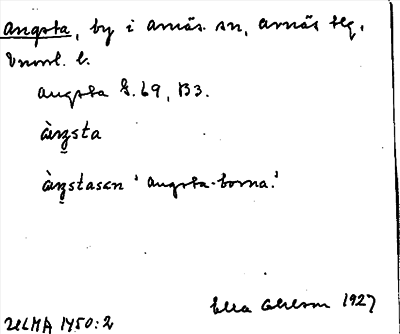 Angsta, by i Arnäs sn, Arnäs tlg,
Vnorrl. l.
Angsta G.69, B3.
àŋsta
àŋstasɑn 'Angsta-borna.'
Ella Ohlson 1927
ULMA 1450:2